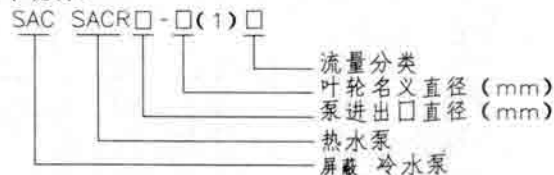 SAC SACR□-□(1)□
流量分类
叶轮名义直径(mm)
泵进出口直径(mm)
热水泵
屏蔽 冷水泵